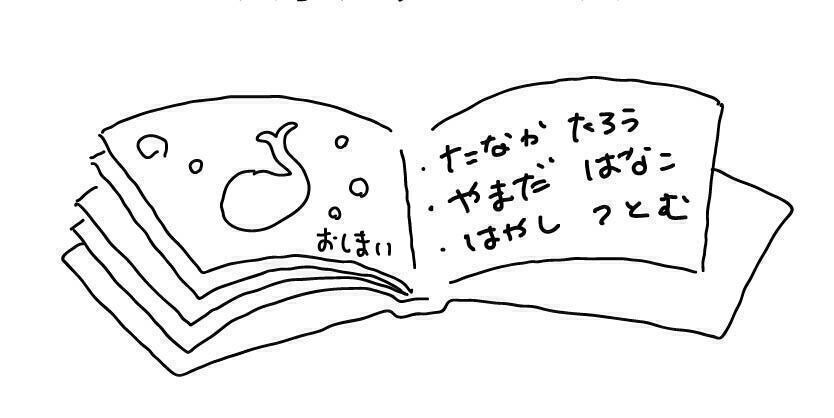 おしまい
・たなか たろう
・やまだ はなこ
・はやし つとむ